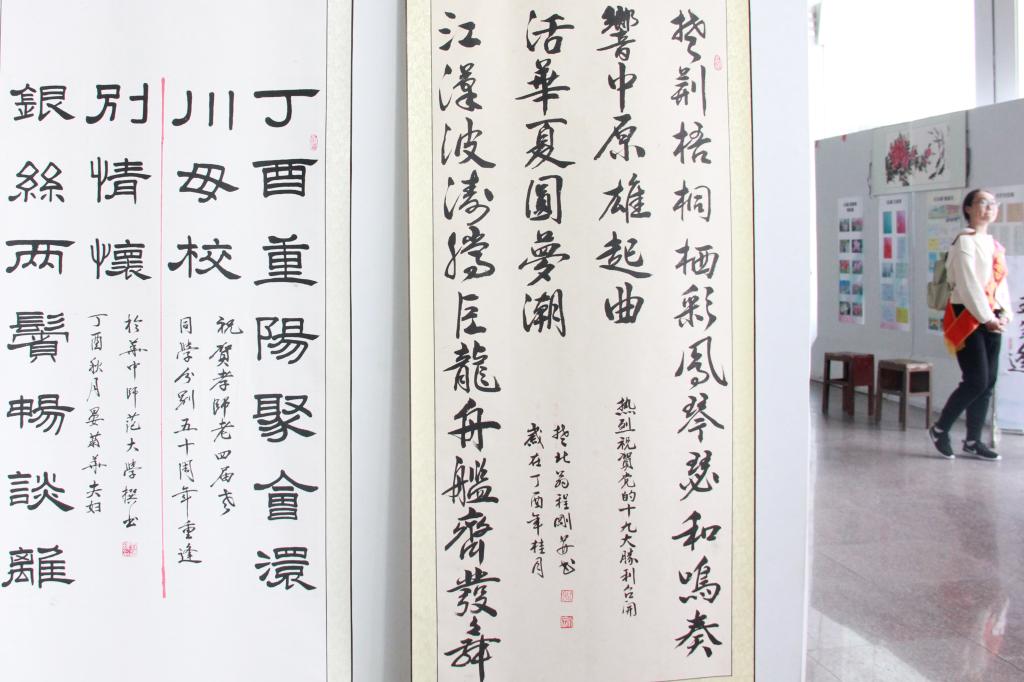 楚荆梧桐栖彩鳳琴瑟和鳴奏
響中原雄起曲
热烈祝賀党的十九大勝利召開
江漢波濤騰巨龍舟艦齊發舞
活華夏圓夢潮
楚北翁程剛安书
歲在丁酉年桂月
丁酉重陽聚會還
川母校
祝賀孝師老四届老
同學分别五十周年重逢
銀絲两鬢暢談離
別情懷
於華中師范大學撰书
丁酉秋月晏翁華夫妇